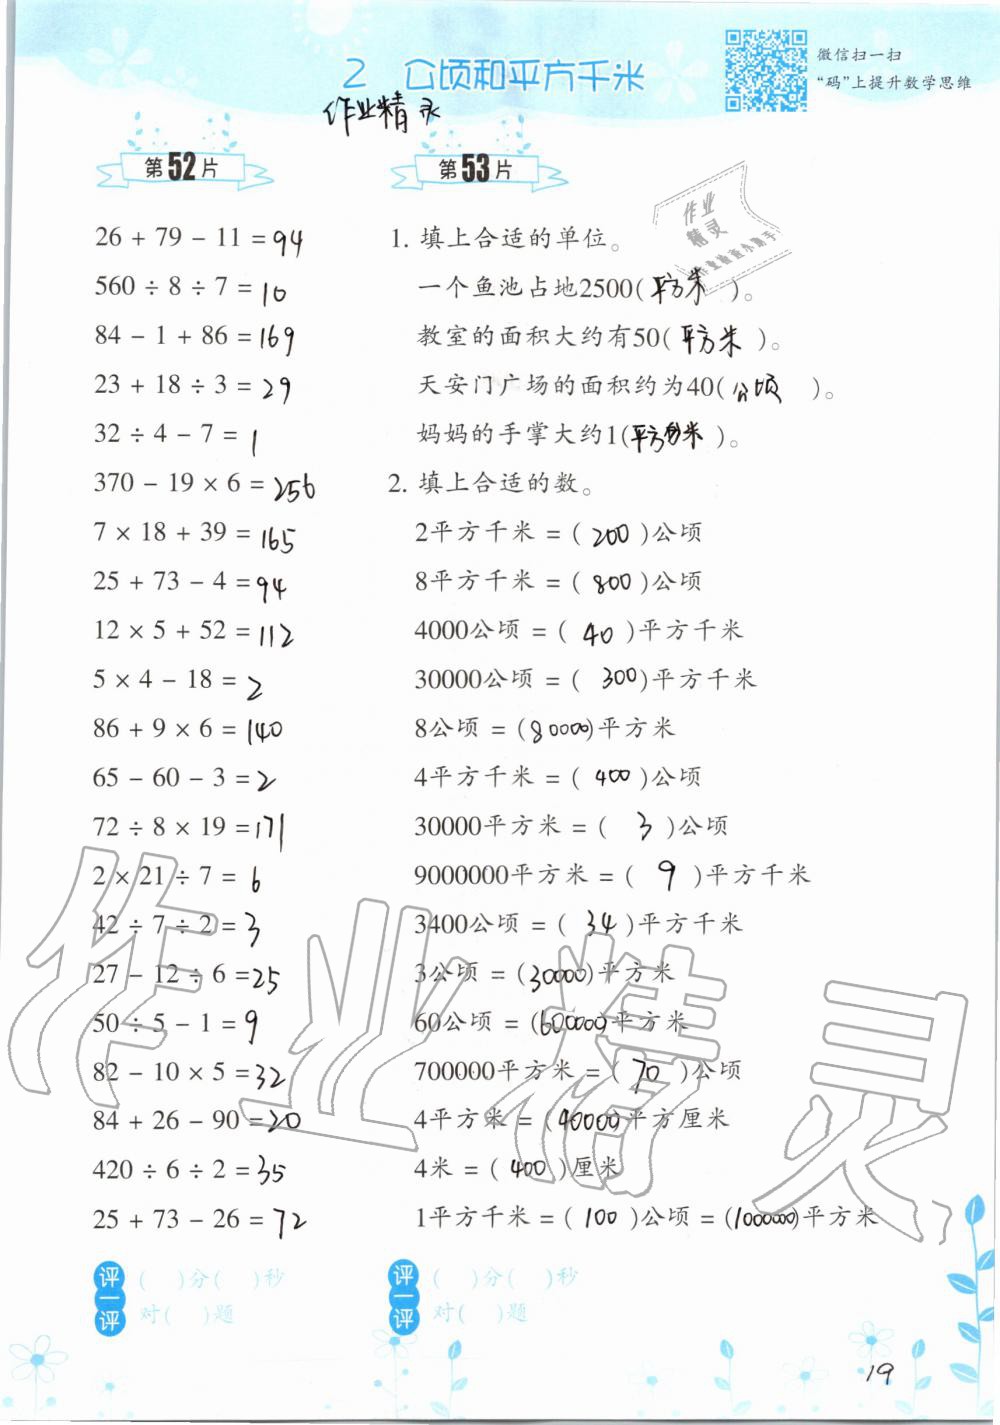 2 公顷和平方千米
微信扫一扫
“码”上提升数学思维
作业精灵
第52片
26 + 79 - 11 = 94
560 ÷ 8 ÷ 7 = 10
84 - 1 + 86 = 169
23 + 18 ÷ 3 = 29
32 ÷ 4 - 7 = 1
370 - 19 × 6 = 256
7 × 18 + 39 = 165
25 + 73 - 4 = 94
12 × 5 + 52 = 112
5 × 4 - 18 = 2
86 + 9 × 6 = 140
65 - 60 - 3 = 2
72 ÷ 8 × 19 = 171
2 × 21 ÷ 7 = 6
42 ÷ 7 ÷ 2 = 3
27 - 12 ÷ 6 = 25
50 ÷ 5 - 1 = 9
82 - 10 × 5 = 32
84 + 26 - 90 = 20
420 ÷ 6 ÷ 2 = 35
25 + 73 - 26 = 72
评一评
( )分( )秒
对( )题
第53片
1. 填上合适的单位。
一个鱼池占地2500(平方米)。
教室的面积大约有50(平方米)。
天安门广场的面积约为40(公顷)。
妈妈的手掌大约1(平方分米)。
2. 填上合适的数。
2平方千米 = (200)公顷
8平方千米 = (800)公顷
4000公顷 = (40)平方千米
30000公顷 = (300)平方千米
8公顷 = (80000)平方米
4平方千米 = (400)公顷
30000平方米 = (3)公顷
9000000平方米 = (9)平方千米
3400公顷 = (34)平方千米
3公顷 = (30000)平方米
60公顷 = (600000)平方米
700000平方米 = (70)公顷
4平方米 = (40000)平方厘米
4米 = (400)厘米
1平方千米 = (100)公顷 = (1000000)平方米
评一评
( )分( )秒
对( )题
19
作业
精灵
作业精灵